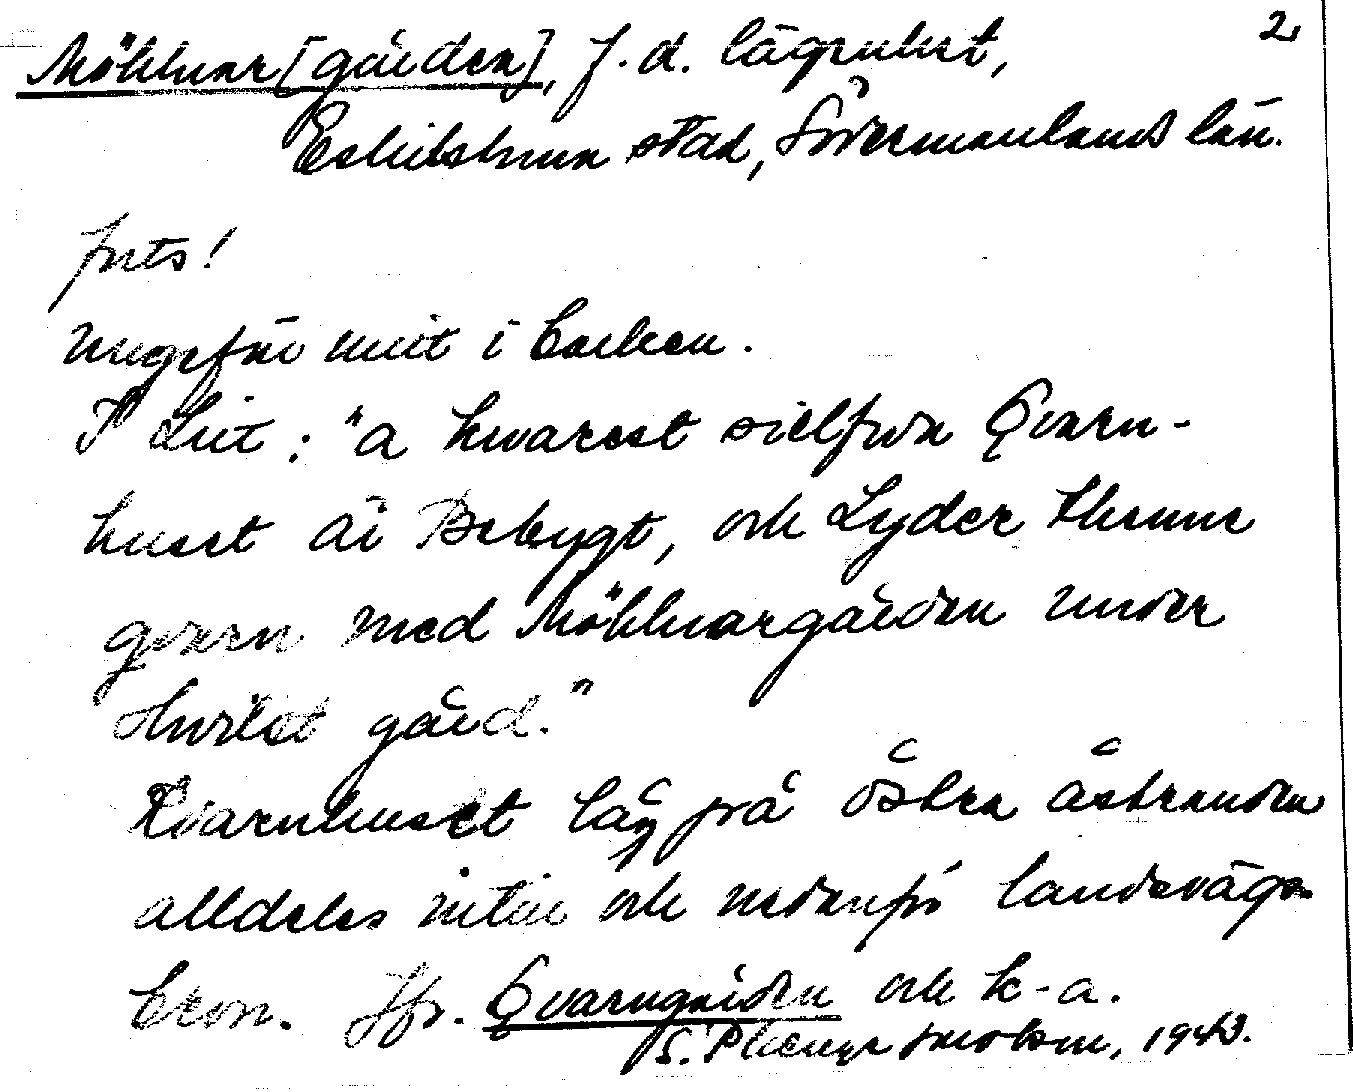 2,
Möhlnar[gården], f.d. lägenhet,
Eskilstuna stad, Södermanlands län.
forts!
Ungefär mitt i backen.
I Lit: "a hwarest sielfwa Qvarn-
huset är Bebygt, och Lyder thenne
qvarn med Möhlnargården under
gård."
Kvarnhuset låg på östra åstranden
alldeles intill och nedanför landsvägs-
bron. Jfr. Qvarngården och k-a.
S. 1943.